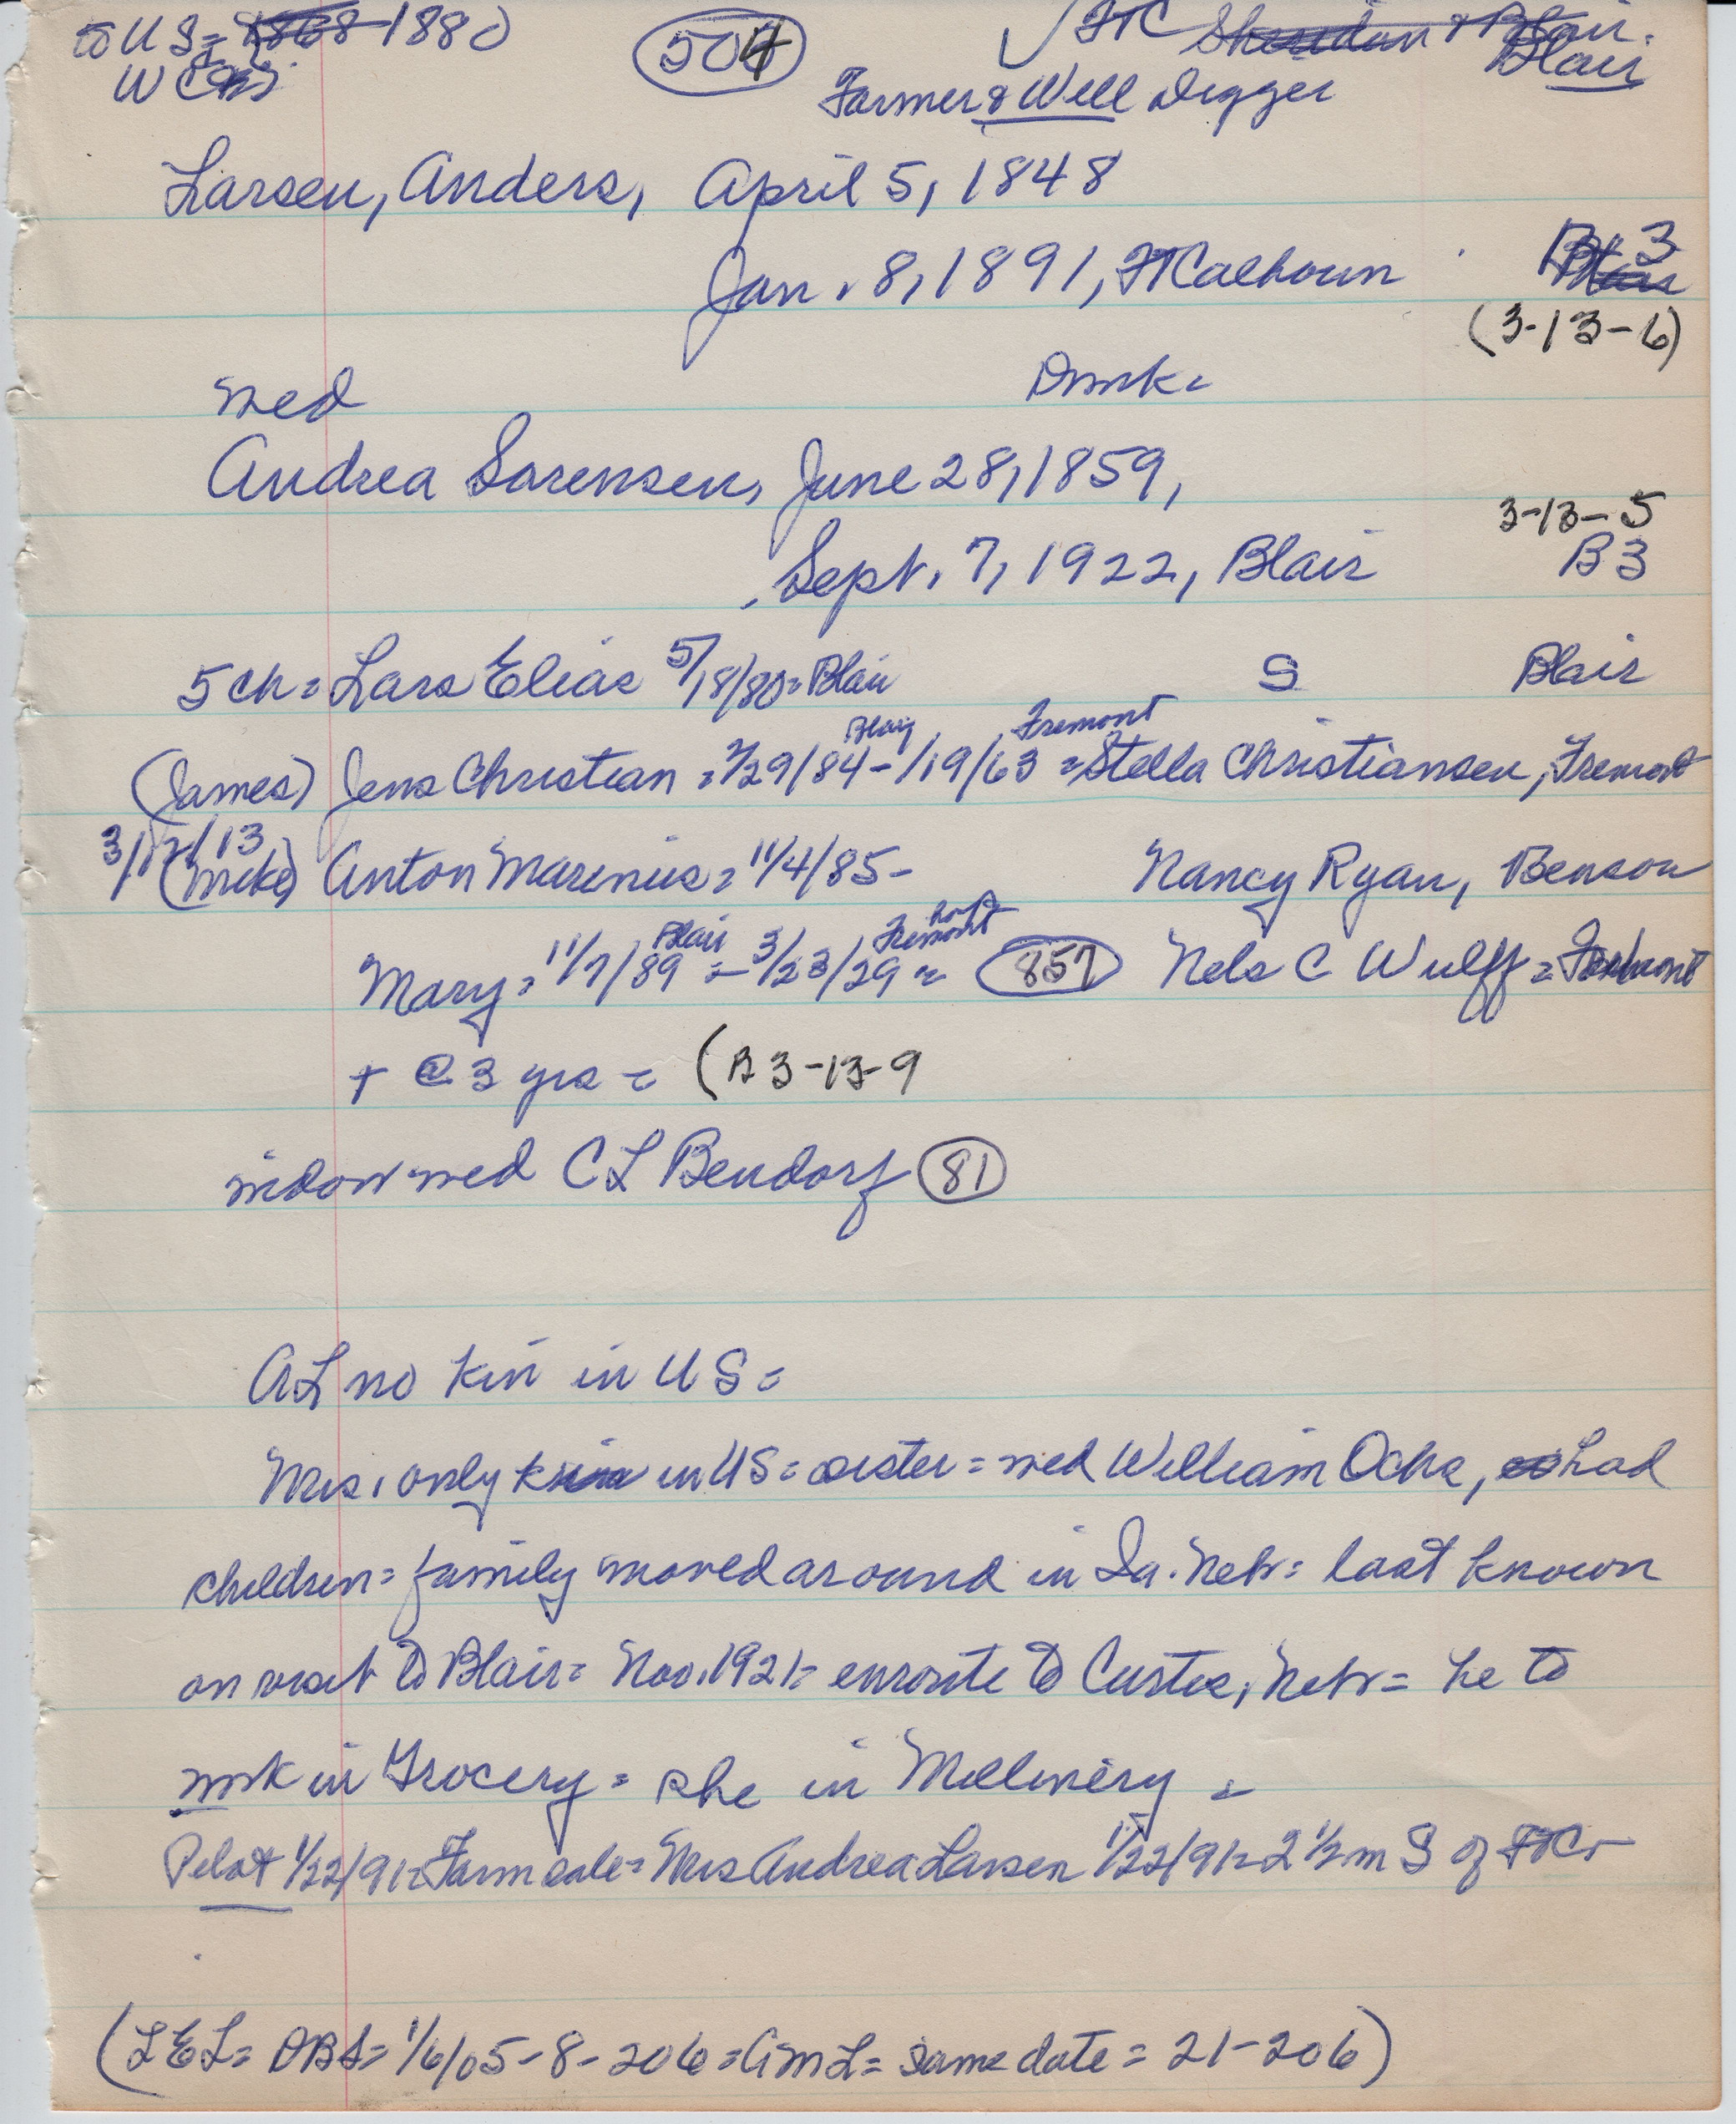 to US = 1868-1880
504
√ FTC Sheridan & Blair.
WC
Blair
Farmer & Well Digger
Larsen, Anders, April 5, 1848
Jan. 8, 1891, FtCalhoun B 3
(3-13-6)
med Dmk =
Andrea Sorensen, June 28, 1859,
3-13-5
Sept. 7, 1922, Blair B 3
5 ch = Lars Elias 5/18/80 = Blair S Blair
Blair Fremont
(James) Jens Christian = 2/29/84 - 1/19/63 = Stella Christiansen, Fremont
3/12/13
(Mike) Anton Marinius = 11/4/85 - Nancy Ryan, Benson
Blair Fremont
Mary = 11/7/89 = 3/23/29 = 857 Nels C Wulff = Fremont
+ @ 3 yrs = (B 3-13-9
widow med C L Bendorf 81
AL no kin in US =
Mrs, only kin in US = sister = med William Ochs, had
children = family moved around in Ia. Nebr = last known
on visit to Blair = Nov. 1921 = enroute to Curtis, Nebr = he to
work in Grocery = she in Millinery =
Pilot 1/22/91 = Farm sale = Mrs Andrea Larsen 1/22/91 = 2 1/2 m S of FtC
(LEL = DBS = 1/6/05-8-206 = AML = same date = 21-206)